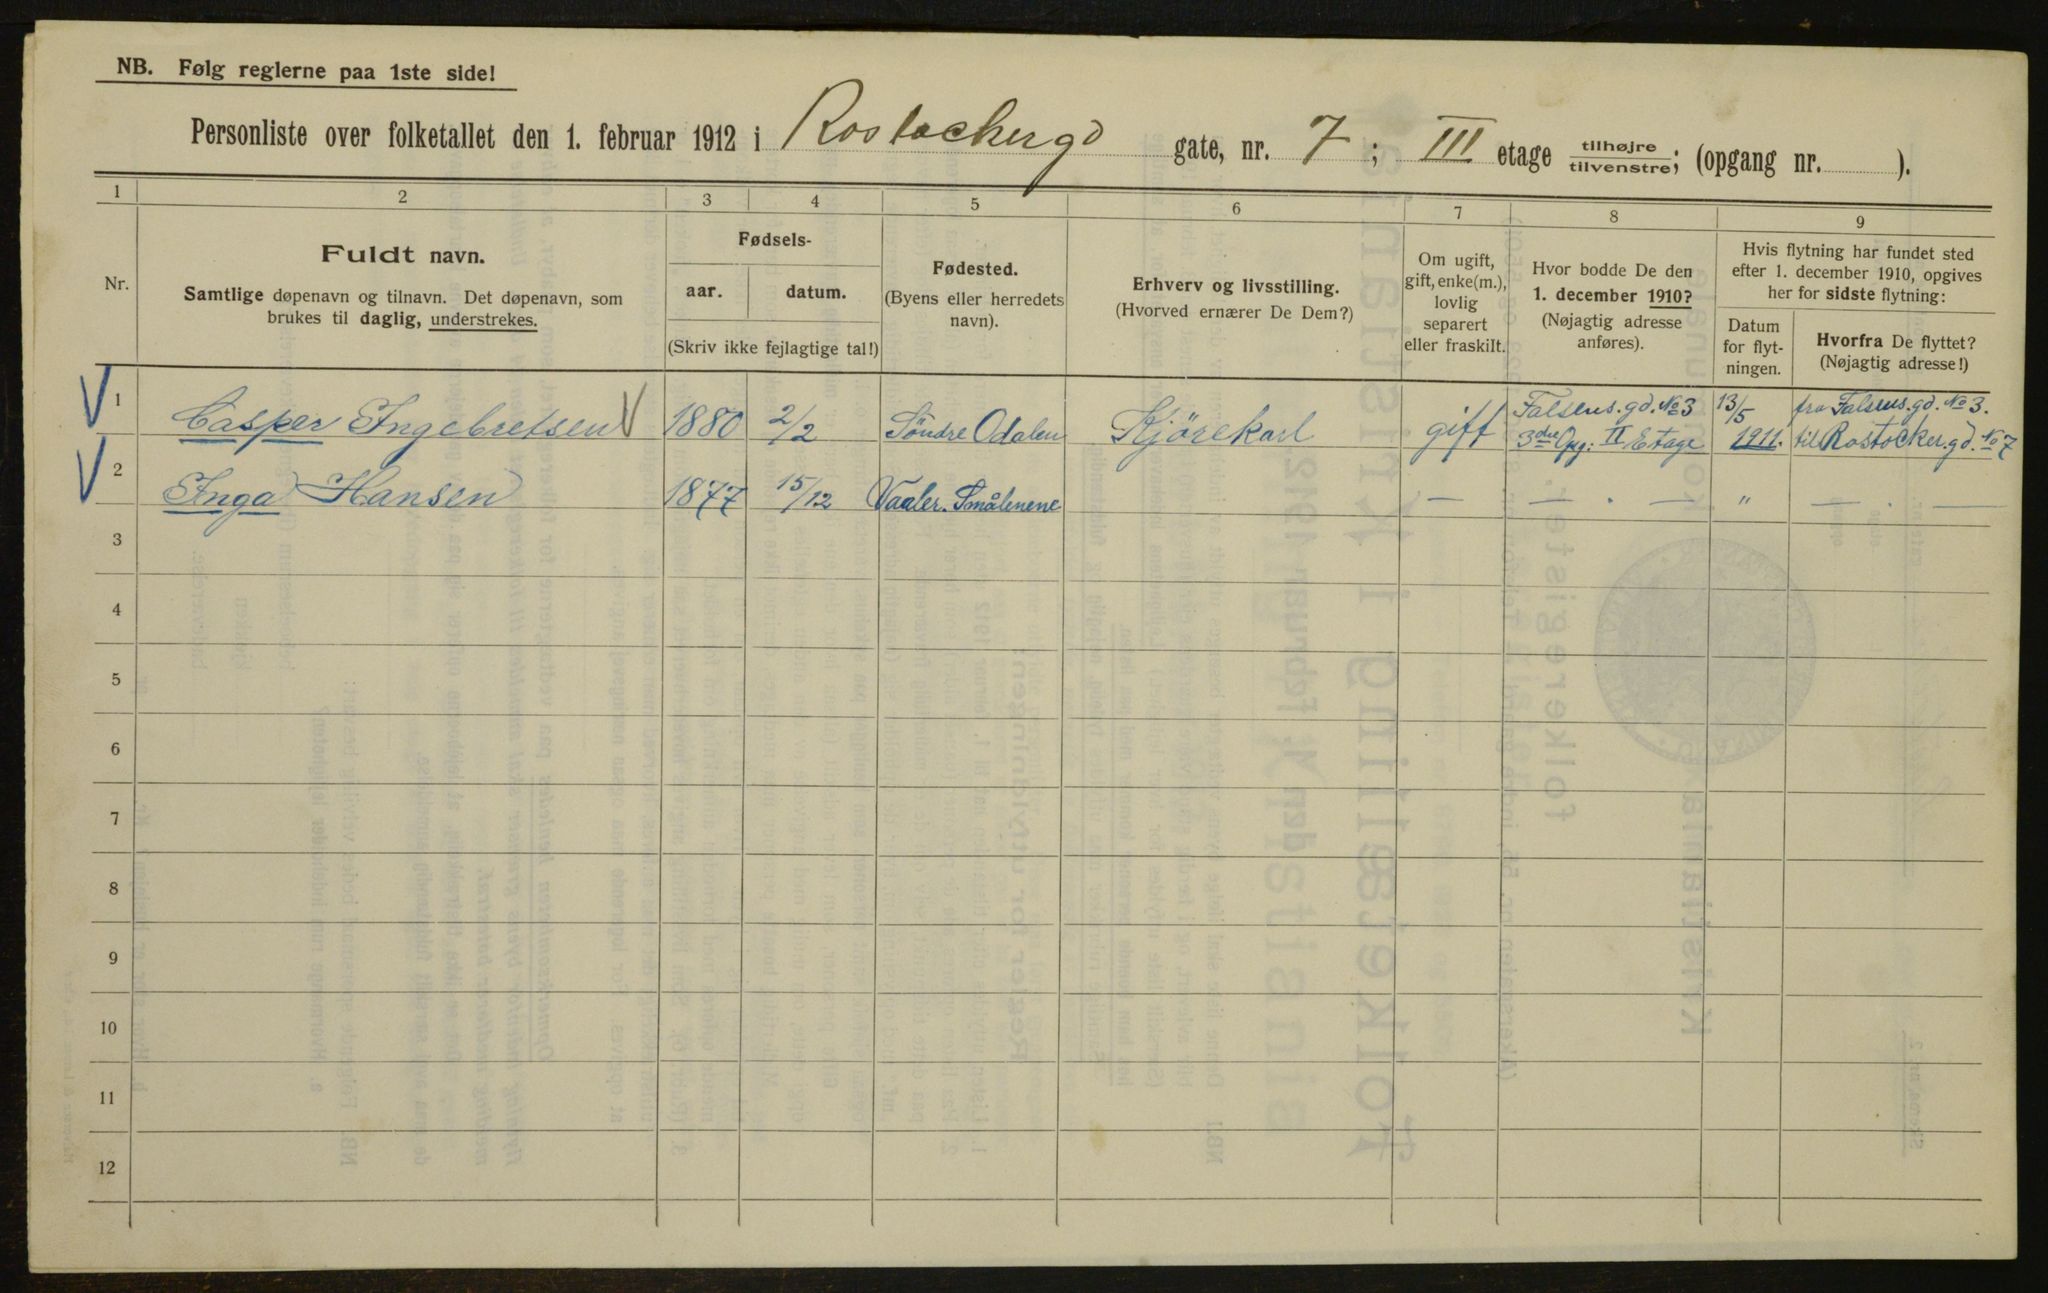 NB. Følg reglerne paa 1ste side!
Personliste over folketallet den 1. februar 1912 i Rostockergd gate, nr. 7; III etage tilhøjre/tilvenstre; (opgang nr. ).
1 2 3 4 5 6 7 8 9
Nr.
Fuldt navn.
Samtlige døpenavn og tilnavn. Det døpenavn, som
brukes til daglig, understrekes.
Fødsels-
aar. datum.
(Skriv ikke fejlagtige tal!)
Fødested.
(Byens eller herredets
navn).
Erhverv og livsstilling.
(Hvorved ernærer De Dem?)
Om ugift,
gift, enke(m.),
lovlig
separert
eller fraskilt.
Hvor bodde De den
1. december 1910?
(Nøjagtig adresse
anføres).
Hvis flytning har fundet sted
efter 1. december 1910, opgives
her for sidste flytning:
Datum
for flyt-
ningen.
Hvorfra De flyttet?
(Nøjagtig adresse!)
1 Casper Ingebretsen 1880 2/2 Söndre Odalen Kjörekarl gift Falsens.gd. No 3 13/5 fra Falsens.gd. No 3.
3die Opg: II Etage 1911. til Rostocker.gd. No 7
2 Inga Hansen 1877 15/12 Vaaler. Smålenene — — . — " — . —
3
4
5
6
7
8
9
10
11
12